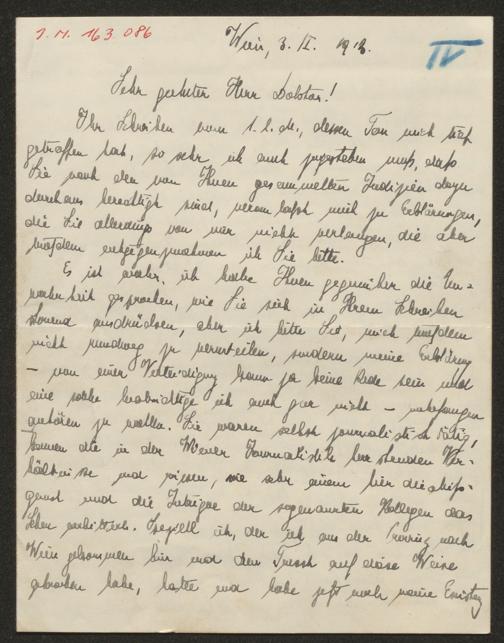 J. N. 163.086
Wien, 3. II. 1913.
IV
Sehr geehrter Herr Doktor!
Ihr Schreiben vom 1. l. M., dessen Ton mich tief
getroffen hat, so sehr ich auch zugestehen muß, daß
Sie nach den von Ihnen gesammelten Indizien dazu
durchaus berechtigt sind, veranlaßt mich zu Erklärungen,
die Sie allerdings von mir nicht verlangen, die aber
trotzdem entgegenzunehmen ich Sie bitte.
Es ist wahr, ich habe Ihnen gegenüber die Un-
wahrheit gesprochen, wie Sie sich in Ihrem Schreiben
schonend ausdrücken, aber ich bitte Sie, mich trotzdem
nicht rundweg zu verurteilen, sondern meine Erklärung
– von einer Verteidigung kann ja keine Rede sein und
eine solche beabsichtige ich auch gar nicht – unbefangen
anhören zu wollen. Sie waren selbst journalistisch tätig,
kennen die in der Wiener Journalistik herrschenden Ver-
hältnisse und wissen, wie sehr einem hier die Miß-
gunst und die Intrigue der sogenannten Kollegen das
Leben verbittern. Speziell ich, der ich aus der Provinz nach
Wien gekommen bin und den Trust auf diese Weise
gebrochen habe, hatte und habe jetzt noch meine Existenz